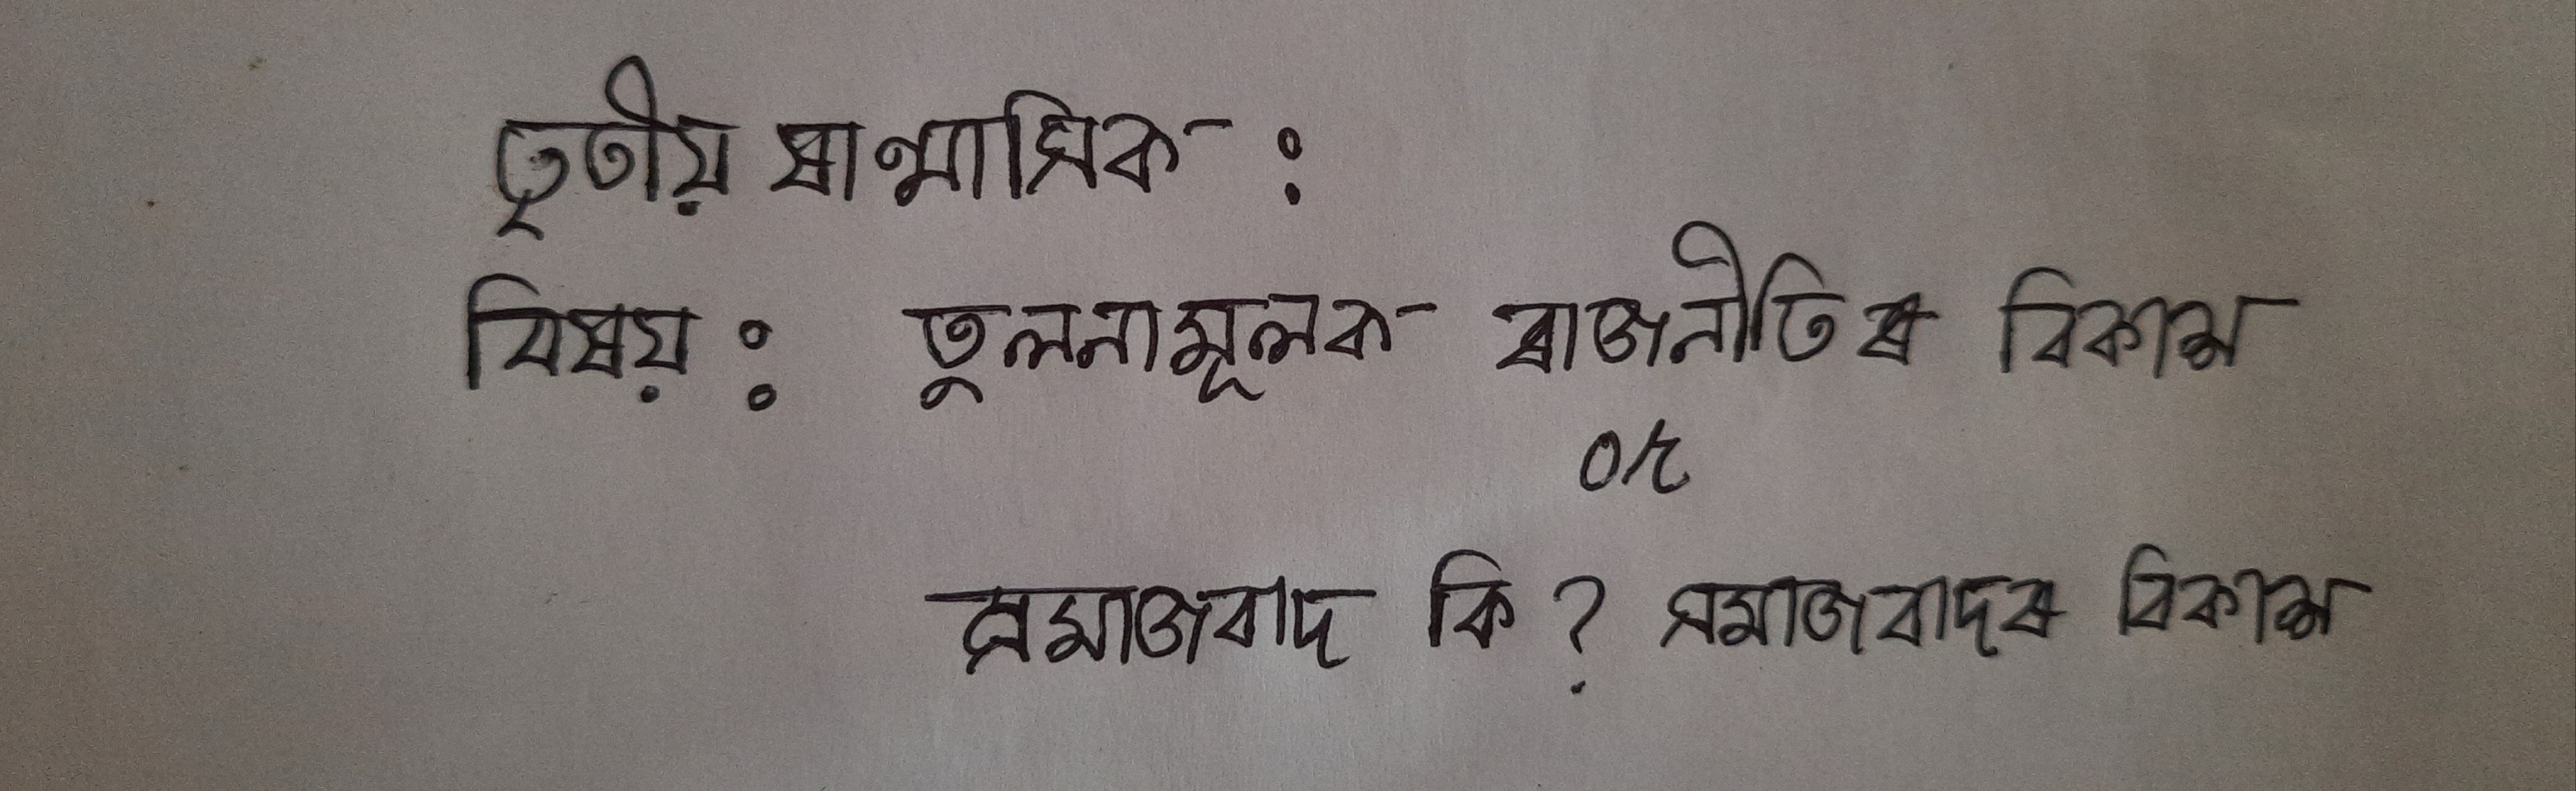 তৃতীয় ষাণ্মাসিক :
বিষয় : তুলনামূলক ৰাজনীতিৰ বিকাশ
or
সমাজবাদ কি ? সমাজবাদৰ বিকাশ